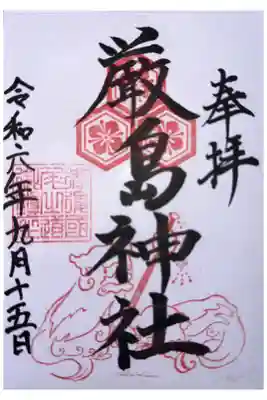 奉拝
厳島神社
令和六年九月十五日